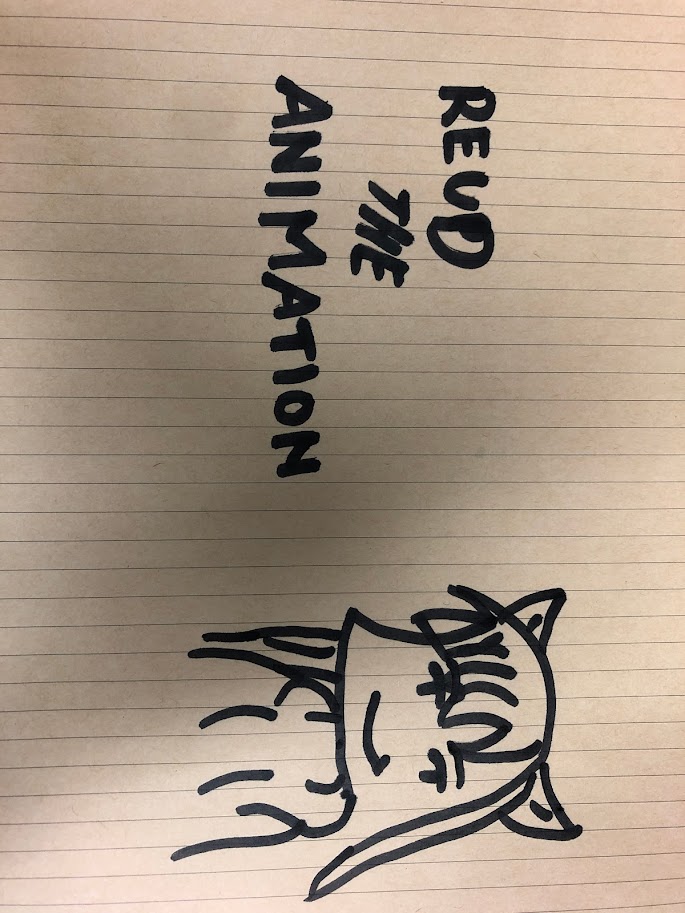 REUD
THE
ANIMATION